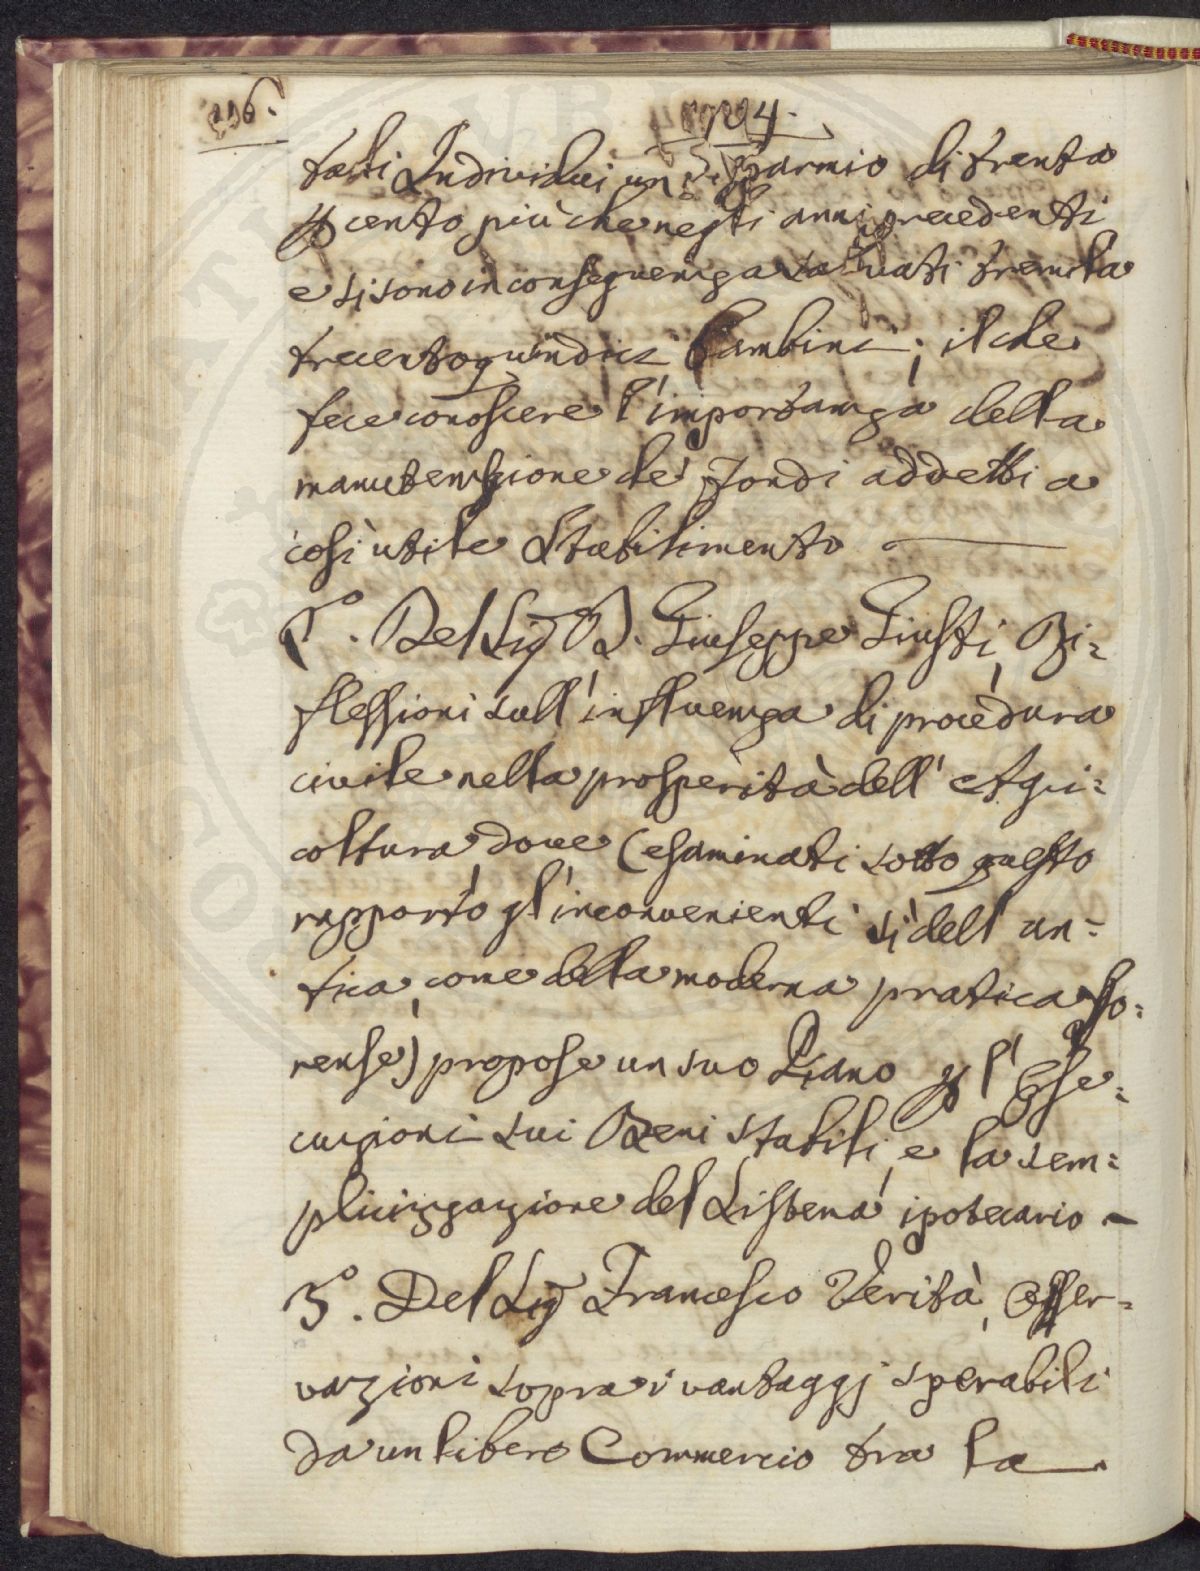 116.
tali Individui un risparmio di trenta
p cento più che negli anni precedenti
e si sono in conseguenza salvati tremila
trecentoquindici bambini; il che
fece conoscere l'importanza della
manutenzione de' fondi addetti a
così utile Stabilimento
Del Sig D. Giuseppe Giusti, Ri=
flessioni sull'influenza di procedura
civile nella prosperità dell'Agri=
coltura dove (esaminati sotto questo
rapporto gl'inconvenienti sì dell'an=
tica, come della moderna pratica fo=
rense) propose un suo Piano p l'Ese=
cuzioni sui Beni stabili, e la sem=
plicizzazione del Sistema ipotecario
3°. Del Sig Francesco Verità, Osser=
vazioni sopra i vantaggj sperabili
da un libero Commercio tra la